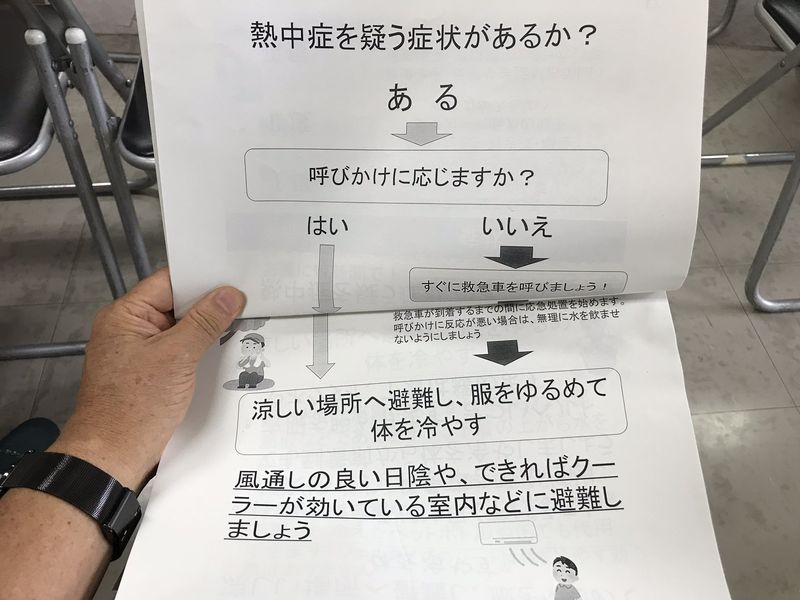 熱中症を疑う症状があるか？
ある
呼びかけに応じますか？
はい
いいえ
すぐに救急車を呼びましょう！
救急車が到着するまでの間に応急処置を始めます。
呼びかけに反応が悪い場合は、無理に水を飲ませ
ないようにしましょう
涼しい場所へ避難し、服をゆるめて
体を冷やす
風通しの良い日陰や、できればクー
ラーが効いている室内などに避難し
ましょう